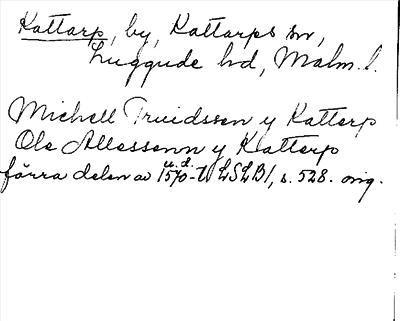 Kattarp, by, Kattarps sn,
Luggude hd, Malm. l.
Michell Truidssen y Kattarp
Ole Allessenn y Kattarp
u. d.
förra delen av 1570-t. LSLB1, s. 528. orig.